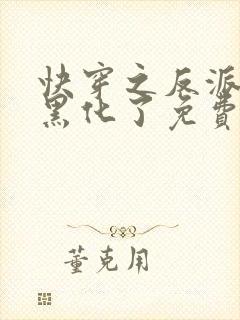 快穿之反派
黑化了免费
董克用